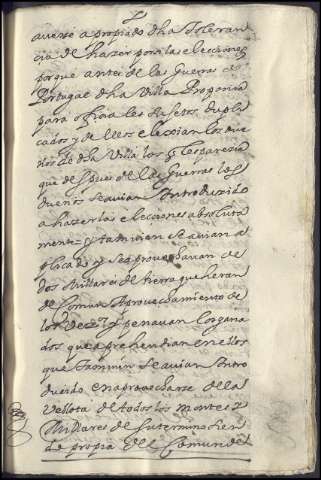 averse apropiado dha toleran
cia de hazer por si las elecciones
porque antes de las Guerras de
Portugal dha Villa Proponia
para oficiales subjetos dupli
cados y de ellos elexian los due
ños de dha Villa los q les parezia
que despues de las Guerras los
Dueños se avian Introduzido
a hazer las elecciones absoluta
mente y tambien se avian a
plicado y se aprovechavan de
dos Millares de tierra que heran
de Comun Aprovechamiento de
los Vezos y penavan los gana
dos que aprehendian en ellos
que tanmin se avian Intro
duzido en aprovecharse de la
Vellota de todos los montes y
Millares de su termino sien
do propia del Comun del